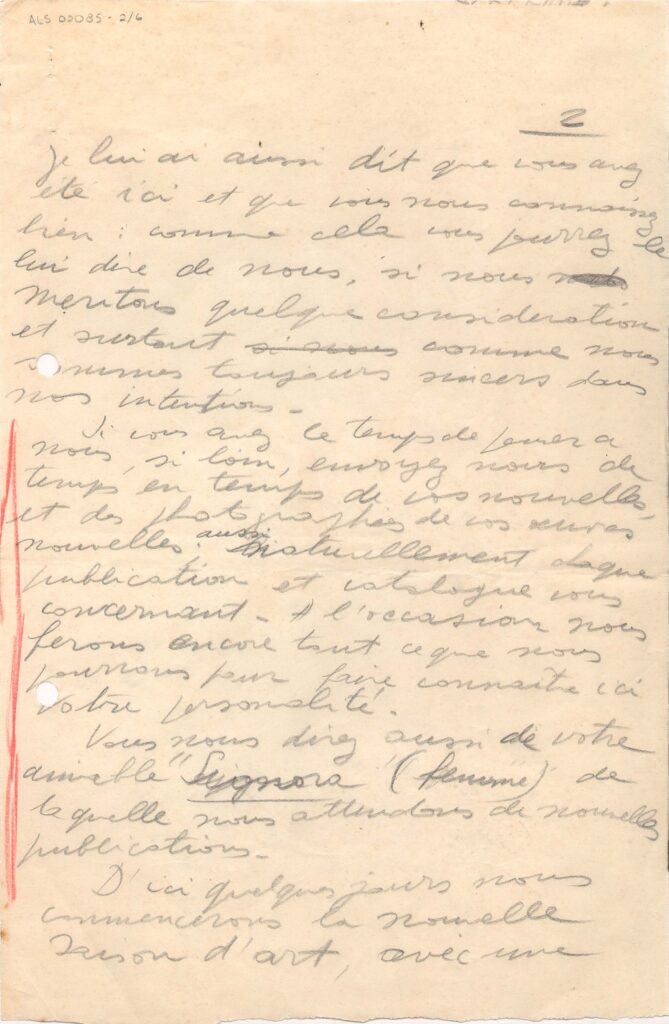 ALS 02085 - 2/6
2
Je lui ai aussi dit que vous avez
été ici et que vous nous connaissez
bien : comme cela vous pourrez le
lui dire de nous, si nous
meritons quelque consideration
et surtout si nous comme nous
sommes toujours sincers dans
nos intentions -
Si vous avez le temps de penser a
nous, si loin, envoyez nous de
temps en temps de vos nouvelles,
et des photographies de vos œuvres
nouvelles; aussi naturellement chaque
publication et catalogue vous
concernant - A l'occasion nous
ferons encore tout ce que nous
pourrons pour faire connaître ici
votre personalité -
Vous nous direz aussi de votre
aimable "Signora" (femme) de
laquelle nous attendons de nouvelles
publications -
D'ici quelques jours nous
commencerons la nouvelle
saison d'art, avec une